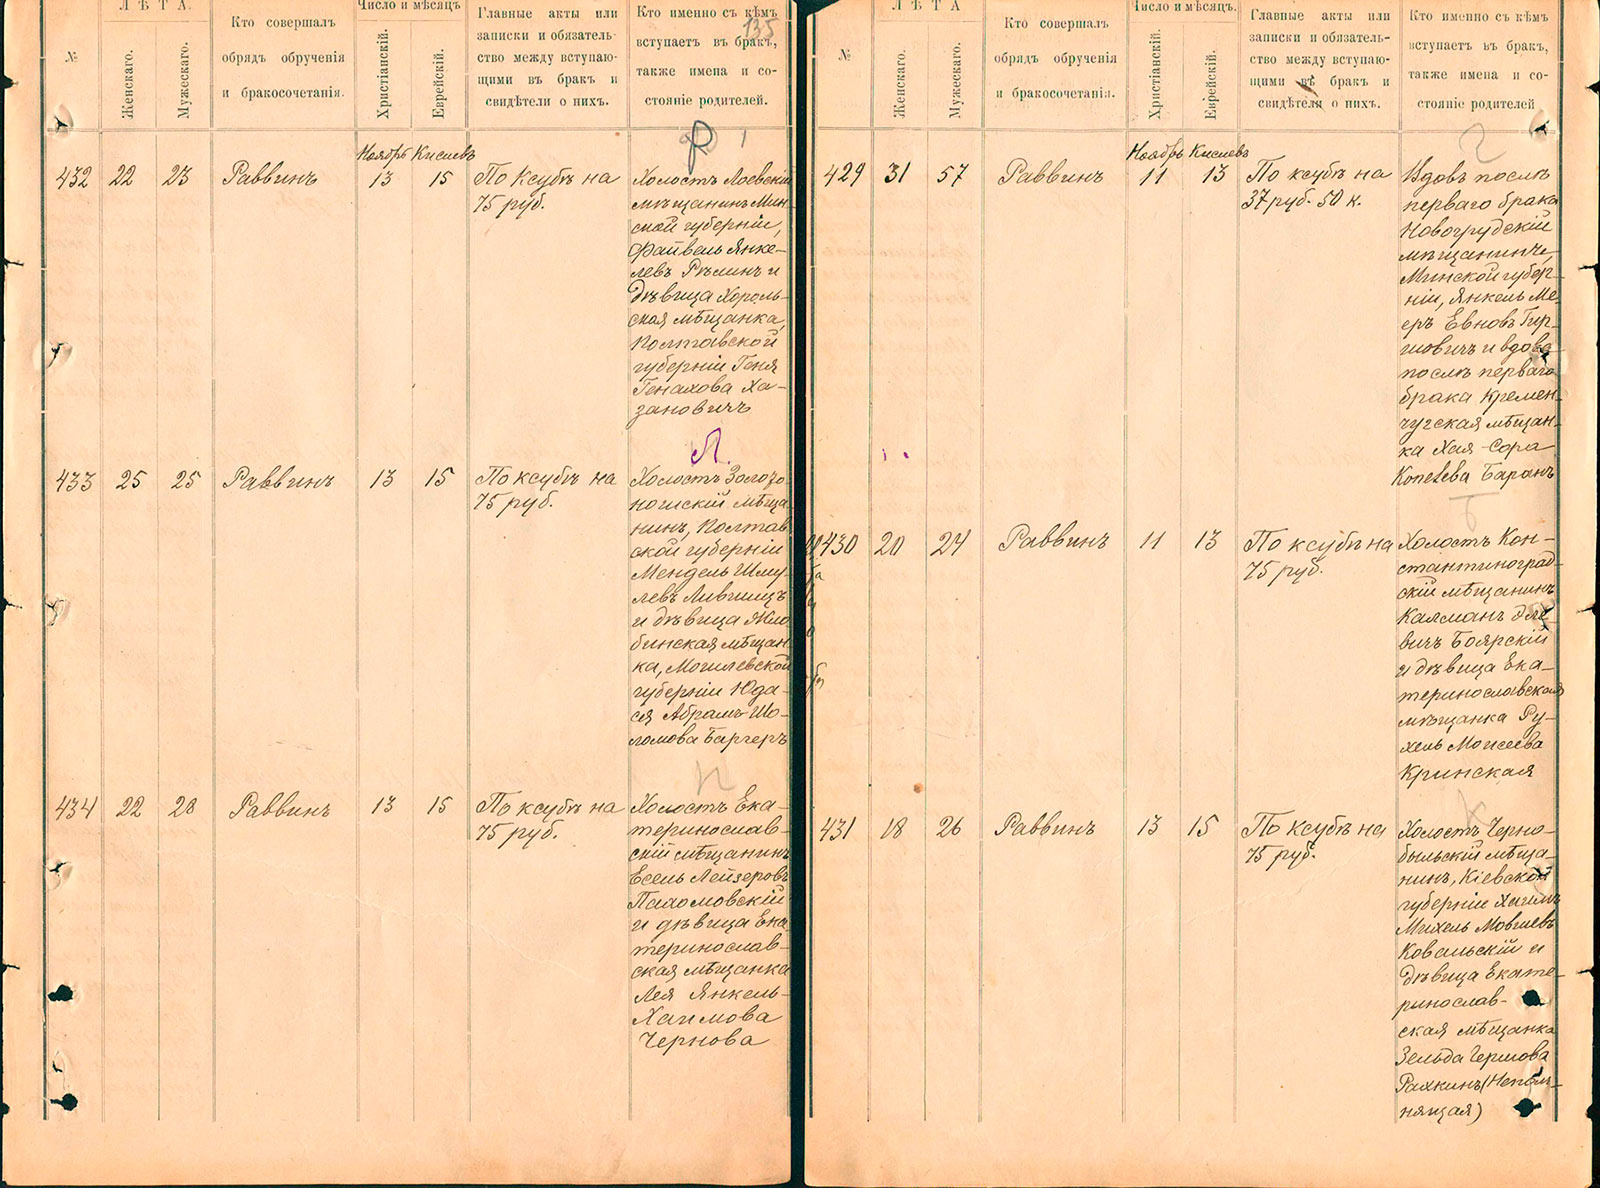 ЛѢТА.
Число и мѣсяцъ
№
Женскаго.
Мужескаго.
Кто совершалъ
обрядъ обрученія
и бракосочетанія.
Христіанскій.
Еврейскій.
Главные акты или
записки и обязатель-
ство между вступаю-
щими въ бракъ и
свидѣтели о нихъ.
Кто именно съ кѣмъ
вступаетъ въ бракъ,
также имена и со-
стояніе родителей.
135
Р
Ноябрь Кислевъ
432 22 23 Раввинъ 13 15
По ксубѣ на
75 руб.
Холостъ Лоевскій
мѣщанинъ Мин-
ской губерніи,
Файвель Янке-
левъ Рѣлинъ и
дѣвица Хороль-
ская мѣщанка,
Полтавской
губерніи Геня
Генахова Ха-
зановичъ
Л.
433 25 25 Раввинъ 13 15
По ксубѣ на
75 руб.
Холостъ Золото-
ношскій мѣща-
нинъ, Полтав
ской губерніи
Мендель Шму-
левъ Лившицъ
и дѣвица Жло-
бинская мѣщан-
ка, Могилевской
губерніи Юда-
ся Абрамъ-Шо-
ломова Баргеръ
П
434 22 28 Раввинъ 13 15
По ксубѣ на
75 руб.
Холостъ Ека-
теринослав-
скій мѣщанинъ
Есель Лейзеровъ
Пахомовскій
и дѣвица Ека
теринослав-
ская мѣщанка
Лея Янкель-
Хаимова
Чернова
ЛѢТА
Число и мѣсяцъ.
№
Женскаго.
Мужескаго.
Кто совершалъ
обрядъ обрученія
и бракосочетанія.
Христіанскій.
Еврейскій.
Главные акты или
записки и обязатель-
ство между вступаю-
щими въ бракъ и
свидѣтели о нихъ.
Кто именно съ кѣмъ
вступаетъ въ бракъ,
также имена и со-
стояніе родителей
Г
Ноябрь Кислевъ
429 31 57 Раввинъ 11 13
По ксубѣ на
37 руб. 50 к.
Вдовъ послѣ
перваго брака
Новогрудскій
мѣщанинъ,
Минской губер-
ніи, Янкель Ме-
еръ Евновъ Гир-
шовичъ и вдова
послѣ перваго
брака Кремен-
чугская мѣщан-
ка Хая-Сора
Копелева Баранъ
Б
430 20 24 Раввинъ 11 13
По ксубѣ на
75 руб.
Холостъ Кон-
стантиноград-
скій мѣщанинъ
Калманъ Эле-
вичъ Боярскій
и дѣвица Ека-
теринославская
мѣщанка Ру-
хель Моисеева
Кринская
К
431 18 26 Раввинъ 13 15
По ксубѣ на
75 руб.
Холостъ Черно-
быльскій мѣща-
нинъ, Кіевской
губерніи Хаимъ
Михель Мовшевъ
Ковальскій и
дѣвица Екате-
ринослав-
ская мѣщанка
Зельда Гершова
Рахкинъ (Непом-
нящая)